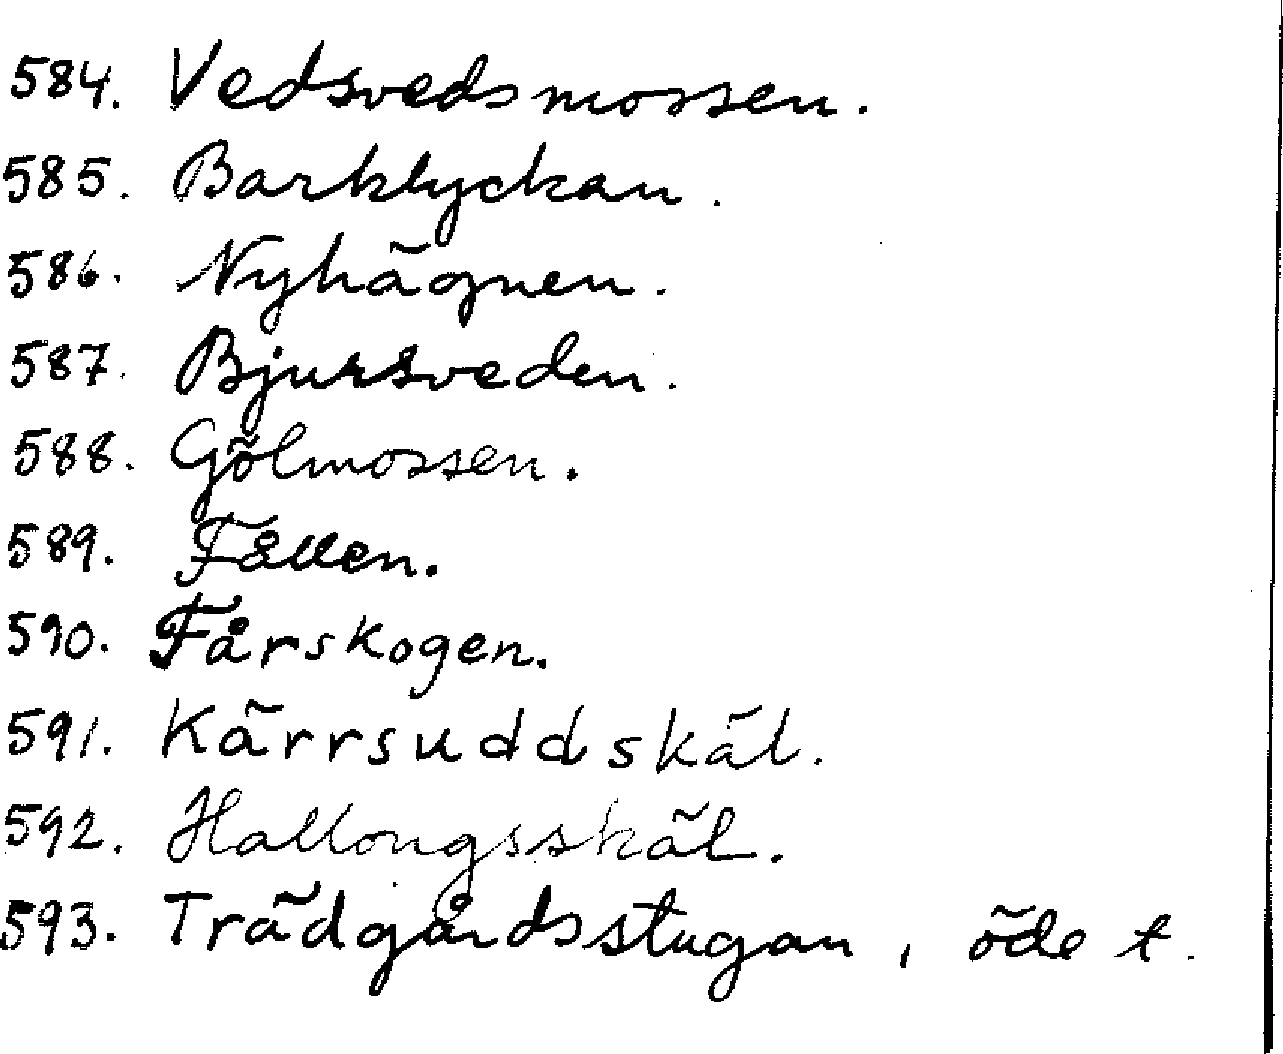 584. Vedsvedsmossen.
585. Barklyckan.
586. Nyhägnen.
587. Bjursveden.
588. Gölmossen.
589. Fållen.
590. Fårskogen.
591. Kärrsuddskäl.
592. Hallongsskäl.
593. Trädgårdsstugan, öde t.